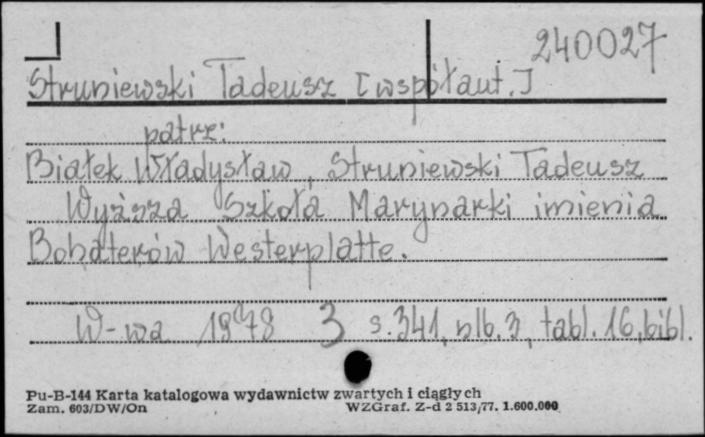 240027
Struniewski Tadeusz [współaut.]
patrz:
Białek Władysław, Struniewski Tadeusz
Wyższa Szkoła Marynarki imienia
Bohaterów Westerplatte.
W-wa 1978 3 s. 341, nlb. 3, tabl. 16, bibl.
Pu-B-144 Karta katalogowa wydawnictw zwartych i ciągłych
Zam. 603/DW/On WZGraf. Z-d 2 513/77. 1.600.000